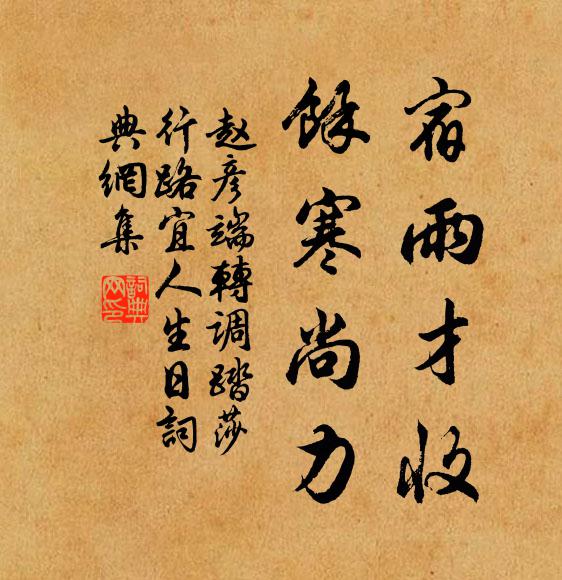 宿雨才收
餘寒尚力
赵彦端轉調踏莎
行路宜人生日詞
典網集
詞典
网印